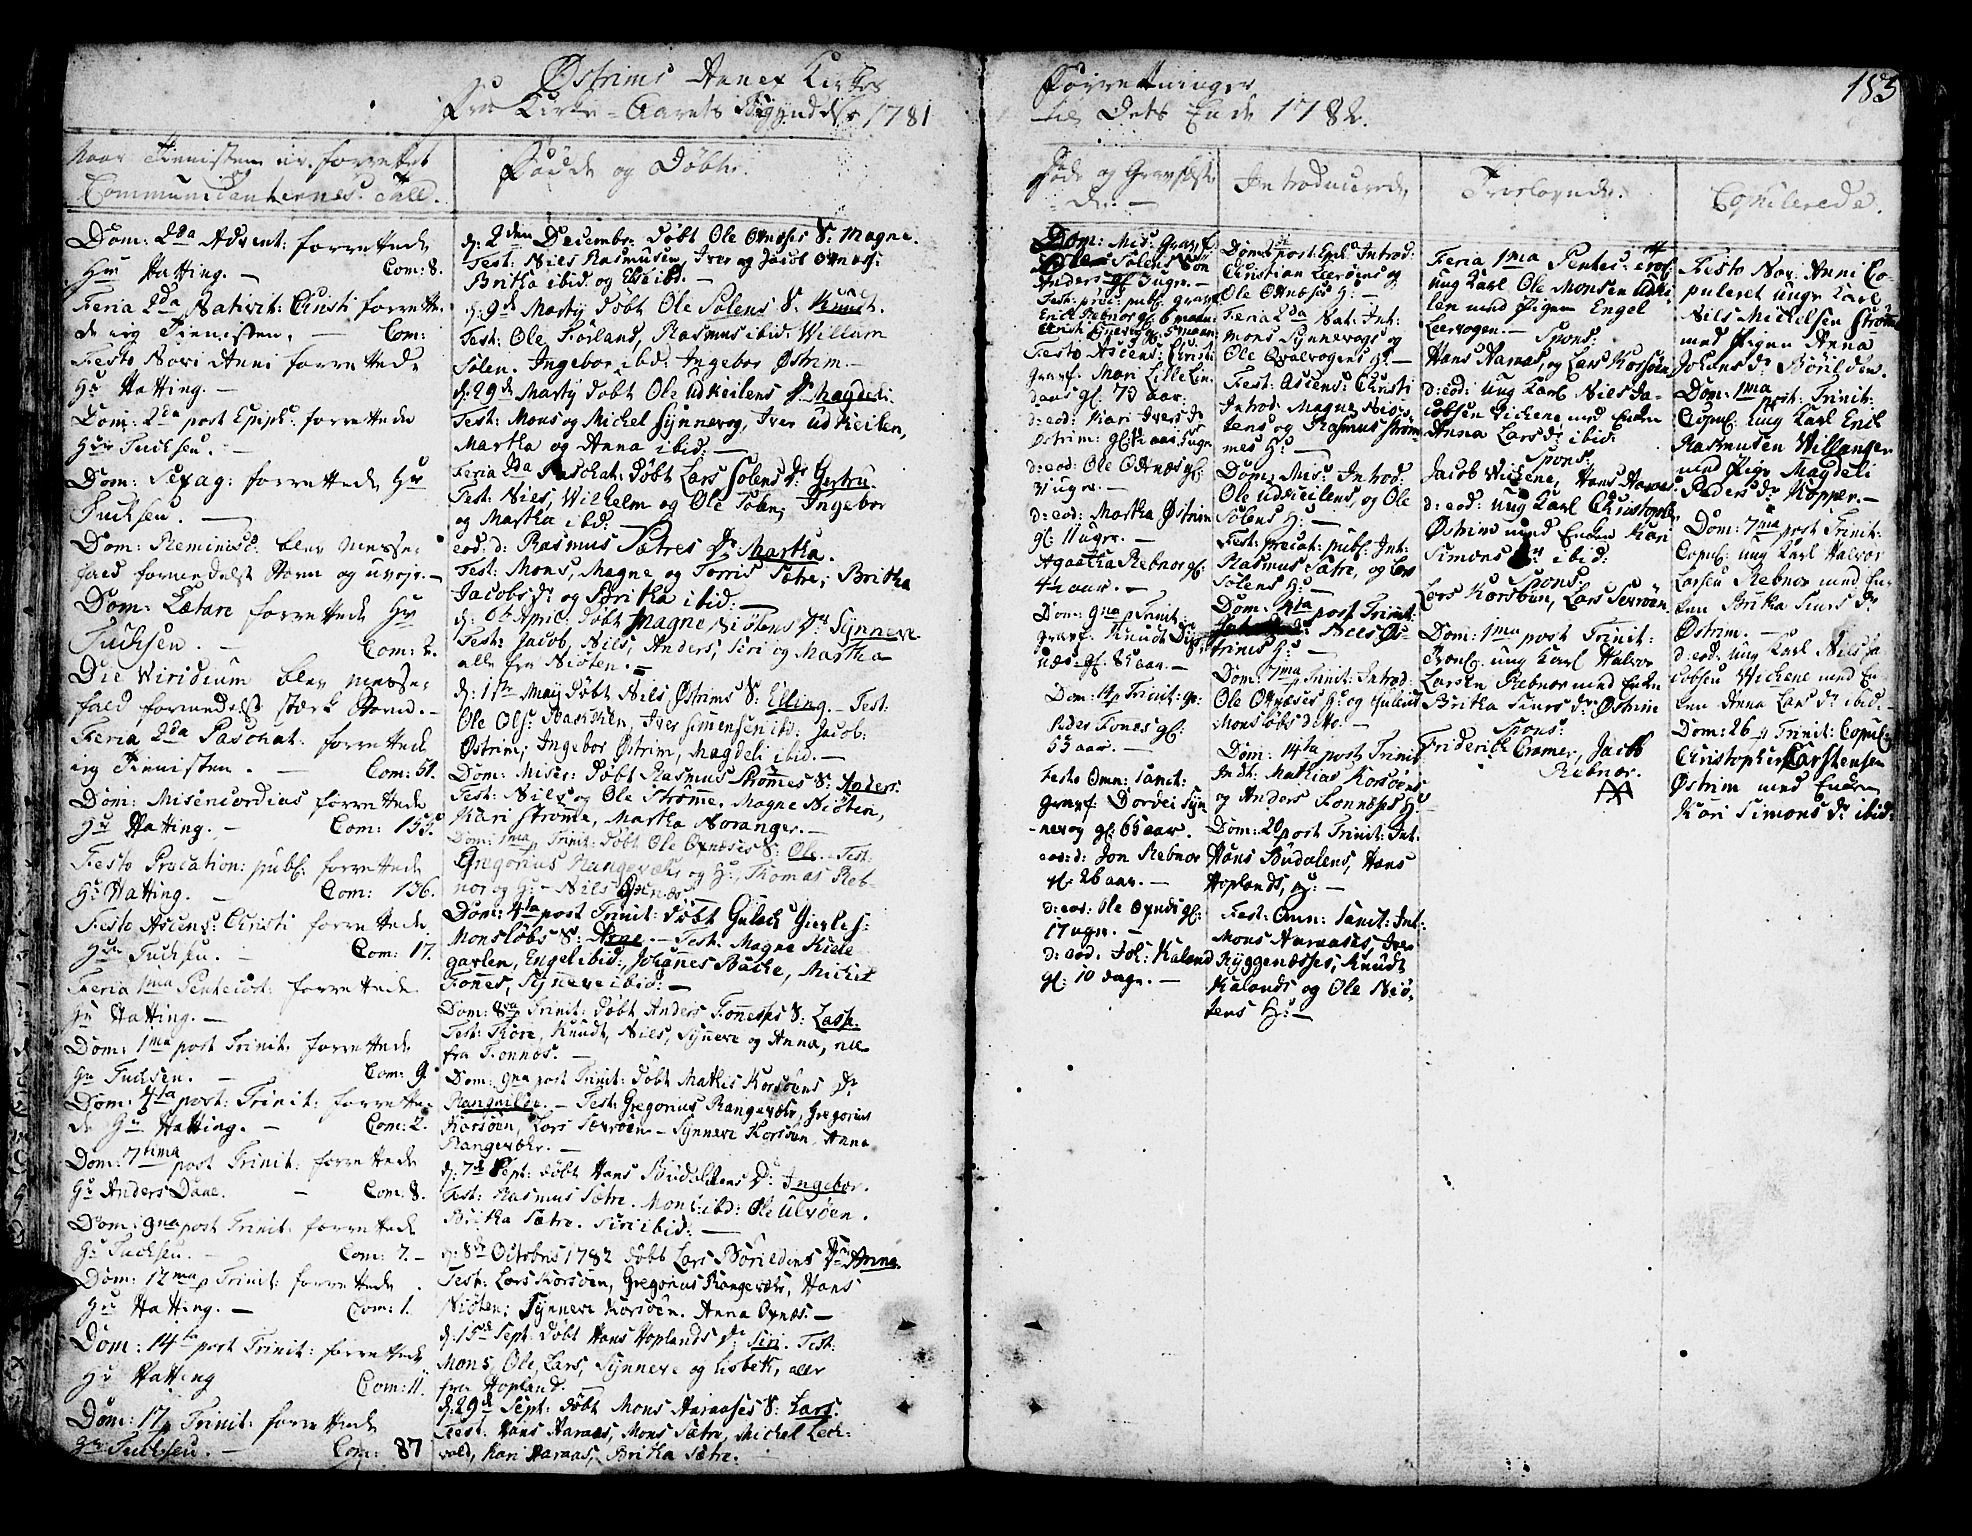 Østrims Annex Kirkes
Fra Kirke-Aarets Begyndelse 1781
Naar Tienisten er forrettet
Communicanternes Tall.
Dom: 2da Advent: forrettede
Hr Hatting. — Com: 8.
Feria 2da Nativit: Christi forrette-
de ieg Tienisten. Com:
Festo Novi Anni forrettede
Hr Hatting. —
Dom: 2da post Epiph: forrettede
Hr Fuchsen. —
Dom: Sexag: forrettede Hr
Fuchsen. —
Dom: Reminisc: blev Messe-
fald formedelst Storm og uvejr. —
Dom: Lætare forrettede Hr
Fuchsen. — Com: 2.
Die Viridium blev Messe-
fald formedelst stærk Storm. —
Feria 2da Paschat: forrettede
ieg Tienisten. — Com: 51.
Dom: Misericordias forrettede
Hr Hatting. — Com: 155.
Festo Precation: publ: forrettede
Hr Hatting. — Com: 136.
Festo Ascens: Christi forrettede
Hr Fuchsen. — Com: 17.
Feria 1ma Pentecost: forrettede
Hr Hatting. —
Dom: 1ma post Trinit: forrettede
Hr Fuchsen. — Com: 9
Dom: 4ta post: Trinit: forrette-
de Hr Hatting. — Com: 2.
Dom: 7tima post Trinit: forrettede
Hr Anders Dane. — Com: 8.
Dom: 9na post Trinit: forrettede
Hr Fuchsen. — Com: 7. —
Dom: 12ma p Trinit: forrettede
Hr Hatting. — Com: 1.
Dom: 14ta post Trinit: forrettede
Hr Hatting Com: 11.
Dom: 17 p Trinit: forrettede
Hr Fuchsen. — Com: 87
Fødde og Døbte.
d: 2den Decembr: døbt Ole Ottnæses S: Magne.
Test: Nils Rasmusen, Iver og Jacob Ottnæs:
Britha ibid: og Else ibid. —
d: 9de Marty døbt Ole Solens S: Knud.
Test: Ole Førland, Rasmus ibid: Willum
Solen. Ingebor ibid: Ingebor Østrim. —
d: 29de Marty døbt Ole Udkeilens Dr Magdeli.
Test: Mons og Michel Synnevog, Iver Udkeilen,
Martha og Anna ibid: —
Feria 2da Paschat: døbt Lars Solens Dr Gertru.
Test: Niels, Wilhelm og Ole Solen; Ingebor
og Martha ibid. —
eod: d: Rasmus Sætres Dr Martha.
Test: Mons, Magne og Torris Sætre; Britha
Jacobs Dr og Britha ibid: —
d: 6te April: døbt Magne Niøtens Dr Synneve
Test: Jacob, Nils, Anders, Siri og Martha
alle fra Niøten. —
d: 1ste May døbt Nils Østrims S: Elling. — Test:
Ole Ols: Backken, Iver Simensen ibid: Jacob:
Østrim; Ingebor Østrim, Magdeli ibid. —
Dom: Miser: døbt Rasmus Strømes S: Anders.
Test: Nils og Ole Strømme, Magne Niøten,
Kari Strøme, Martha Noranger. —
Dom: 1ma p Trinit: døbt Ole Oxnæses S: Ole. — Test:
Gregorius Rangevær, og H:, Thomas Reb-
nor og H: — Nils Oxnæs. —
Dom: 4ta post Trinit: døbt Gulack Gierløf:
Monsløbs S: Arne. — Test: Magne Kiele
garlen, Engel ibid:, Johannes Backe, Michel
Fones, Synneve ibid: —
Dom: 8va Trinit: døbt Anders Fonesses S: Lasse.
Test: Thore, Knudt, Nils, Synneve og Anna, alle
fra Fonnes. —
Dom: 9na post Trinit: døbt Mathis Korsøens Dr
Ranguilde. — Test: Gregorius Rangevær, Gregorius
Korsøen, Lars Sævrøen — Synneve Korsøen, Anna
Rangevær. —
d: 7de Sept: døbt Hans Budalens Dr: Ingebor.
Test: Rasmus Sætre, Mons ibid: Ole Ulvøen.
Britha Sætre. Siri ibid: —
d: 8de Octobris 1782 døbt Lars Børildens Dr Anna.
Test: Lars Korsøen, Gregorius Rangevær, Hans
Niøten; Synneve Korsøen. Anna Oxnæs. —
d: 15de Sept: døbt Hans Hoplands Dr Siri. Test:
Mons, Ole, Lars, Synneve og Lisbeth, alle
fra Hopland. —
d: 29de Sept: døbt Mons Haraases S: Lars.
Test: Hans Haraas, Mons Sætre, Michel Lech-
vold, Kari Haraas, Britha Sætre. —
Forrettninger 183
til Dets Ende 1782.
Døde og Gravfæste-
de. —
Dom: Mis: Gravf.
Ole Solens Søn
Anders gl: 3 ugr. —
Test: prec: publ: gravf:
Erich Rebnor gl: 6 maan:
Festo Ascens: Christ:
gravf. Mari Lille Lin-
daas gl: 73 aar.
d: eod: Kari Ivers Dr
d: eod: Ole Ottnæs gl:
31 ugr. —
d: eod: Martha Østrim
gl: 11 ugr. —
Agaatha Rebnor gl:
Dom: 9na p Trinit:
gravf. Knudt
gl. 85 aar. —
Dom: 14 p Trinit: gr:
Peder Fones gl:
53 aar. —
Festo Omn: Sanct:
gravf. Dordei Syn
nevog gl: 65 aar. —
eod: d: Jon Rebnor
gl: 26 aar. —
d: eod: Ole Oxnæs gl:
17 ugr. —
d: eod. Joh: Kaland
gl: 10 dage. —
Introducerede
Dom: 2da post Epiph: Introd:
Christian Leerøens og
Ole Ottnæses H: —
Feria 2da Nat: Int:
mons Synnevogs og
Ole Qvalvogens H: —
Fest: Ascens: Christi
Introd: Magne Niø-
tens og Rasmus Strøm
mes H: —
Dom: Mis: Introd:
Ole Udkeilens, og Ole
Solens H: —
Fest: Precat: publ: Int:
Rasmus Sætre, og Lars
Solens H: —
Dom: 4ta post Trinit:
Niels Øs-
trims H: —
Dom: 7ma Trinit: Introd:
Ole Ottnæses H: og
Monsløbs ditto. —
Dom: 14ta post Trinit
Indt: Mathias Korsøens
og Anders Fonneses H:
Dom: 20 post Trinit: Int:
Hans Budalens, Hans
Hoplands, H: —
Fest: Omn: Sanct: Int:
Mons Haraases, Iver
Ryggenæsses, Knudt
Kalands og Ole Niø-
tens H: —
Trolovede
Feria 1ma Pentec: trol:
ung Karl Ole Monsen Udkei
len med Pigen Engel
Leervogen. — Spons:
Hans Haraas, og Lars Korsøen
d: eod: ung Karl Nils Ja-
cobsen Vichene med Enken
Anna Lars Dr ibid:
Spons:
Jacob Vichene, Hans Haraas.
d: eod: ung Karl Christopher
Østrim med Enken Kari
Simons Dr ibid:
Spons:
Lars Korsøen, Lars Sevrøen
Dom: 1ma post Trinit:
Trol: ung Karl Halvor
Larsen Rebnor med Enken
Britha Siurs Dr Østrim
Spons:
Friderich Cramer, Jacob
Rebnor.
Copulerede.
Festo Nov: Anni Co-
puleret ungr Karl
Nils Michelsen Strømme
med Pigen Anna
Johans Dr Børilden.
Dom: 1ma post: Trinit:
Copul: ung Karl Erich
Rasmusen Villanger
med Pige Magdeli
Peders Dr Kopper. —
Dom: 7ma post Trinit:
Copul: ung Karl Halvor
Larsen Rebnor med En-
ken Britha Siurs Dr
Østrim. —
d: eod: ung Karl Nils Ja
cobsen Wichene med En-
ken Anna Lars Dr ibid: —
Dom: 26 p Trinit: Copul:
Christopher Carstensen
Østrim med Enken
Kari Simons Dr ibid: